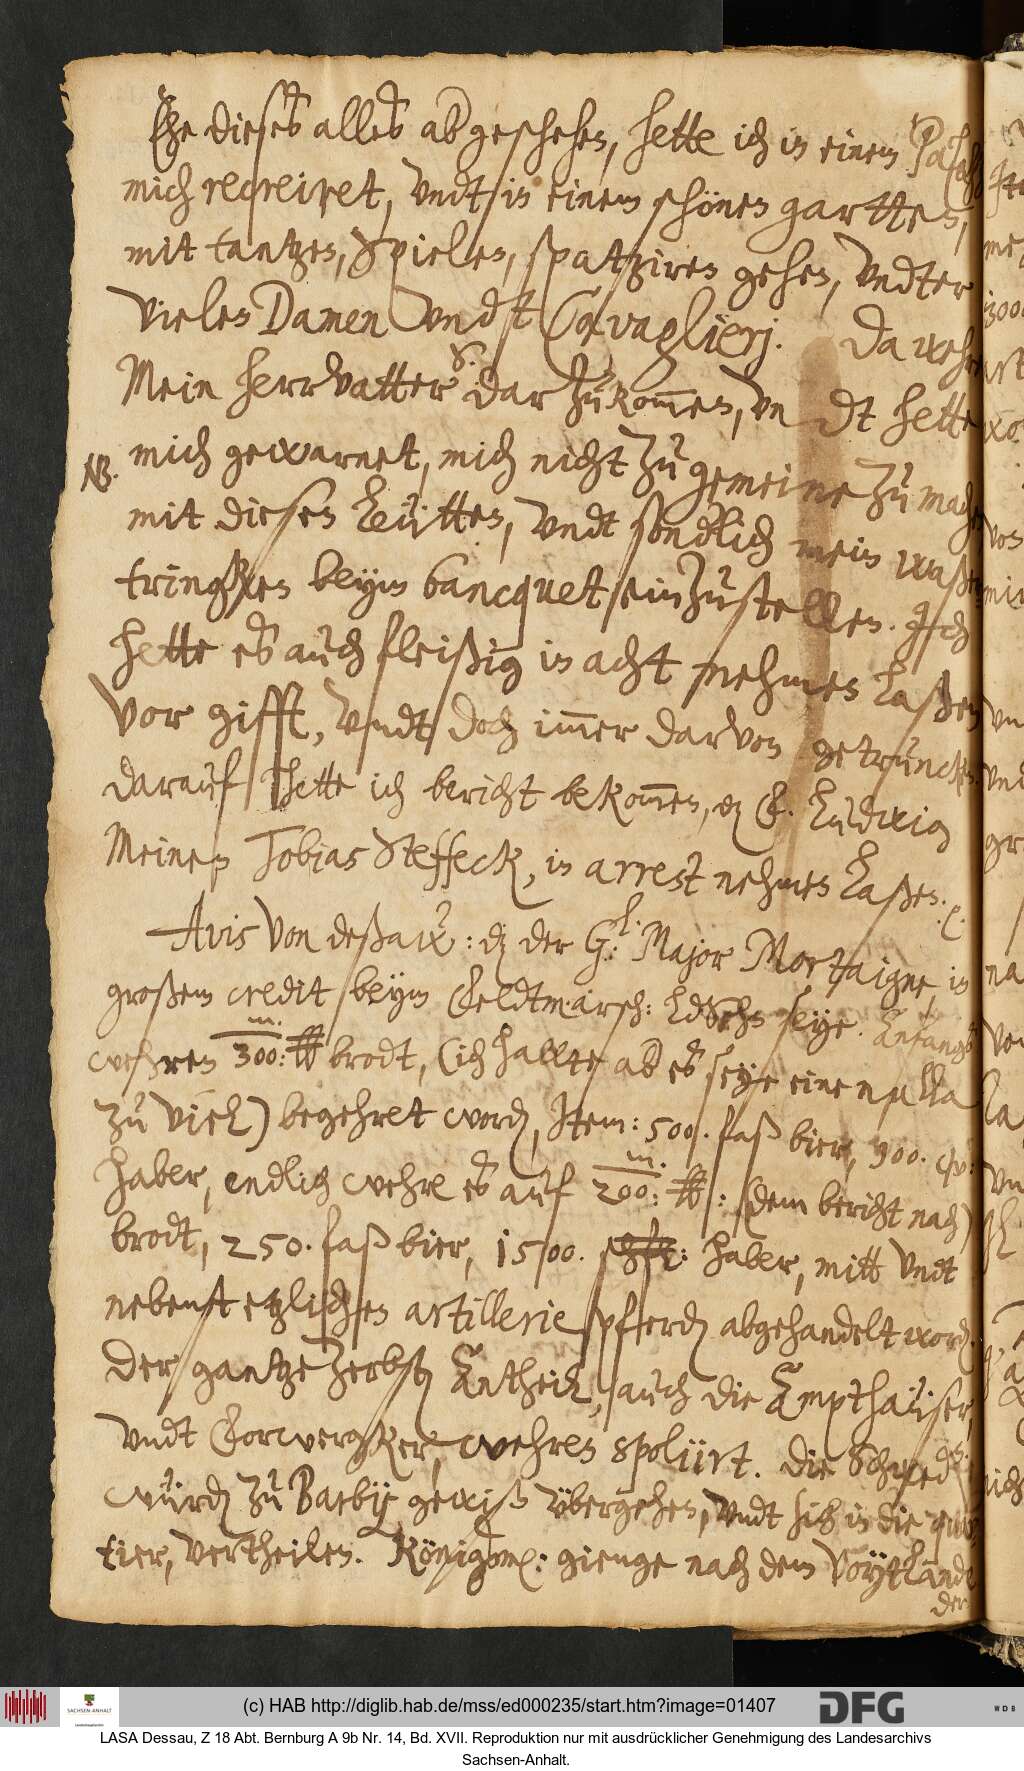 Ehe dieses alles abgeschehen, hette ich in einem Palast
mich recreiret, undt in einem schönen gartten,
mit tantzen, Spielen, spatziren gehen, undter
vielen Damen undt Cavaglierj. Da wehre
Mein herrvatter S. dar zu kommen, undt hette
NB. mich gewarnet, mich nicht zu gemeine zu machen
mit diesen Leütten, undt sondlich mein waßer
tringken beym bancquet einzustellen. Ich
hette es auch fleißig in acht nehmen laßen
vor gifft, undt doch immer darvon getruncken.
darauf hette ich bericht bekommen, dz F. Ludwig
Meinen Tobias Steffeck, in arrest nehmen laßen. etc.
Avis von deßaw: dz der G. Major Mortaigne, in
großem credit beym Feldtmarsch: seye. Anfangs
wehren 300 m. ℔ brodt, (ich hallte ab es seye eine nulla
zu viel) begehret word, Item: 500. faß bier, 900. w:
haber, endlich wehre es auf 200 m. ℔: (dem bericht nach)
brodt, 250. faß bier, 1500. schfl: haber, mitt undt
nebenst etzlichen artillerie pferden abgehandelt worden.
Der gantze Zerbster Antheil, auch die Ampthäuser,
undt Forwergker, wehren spolijrt. Die Schweden
würden zu Barby gewiß übergehen, undt sich in die quar-
tier, vertheilen. Königsm: gienge nach dem Voytlande
der
(c) HAB http://diglib.hab.de/mss/ed000235/start.htm?image=01407
SACHSEN-ANHALT
DFG
WDB
LASA Dessau, Z 18 Abt. Bernburg A 9b Nr. 14, Bd. XVII. Reproduktion nur mit ausdrücklicher Genehmigung des Landesarchivs
Sachsen-Anhalt.